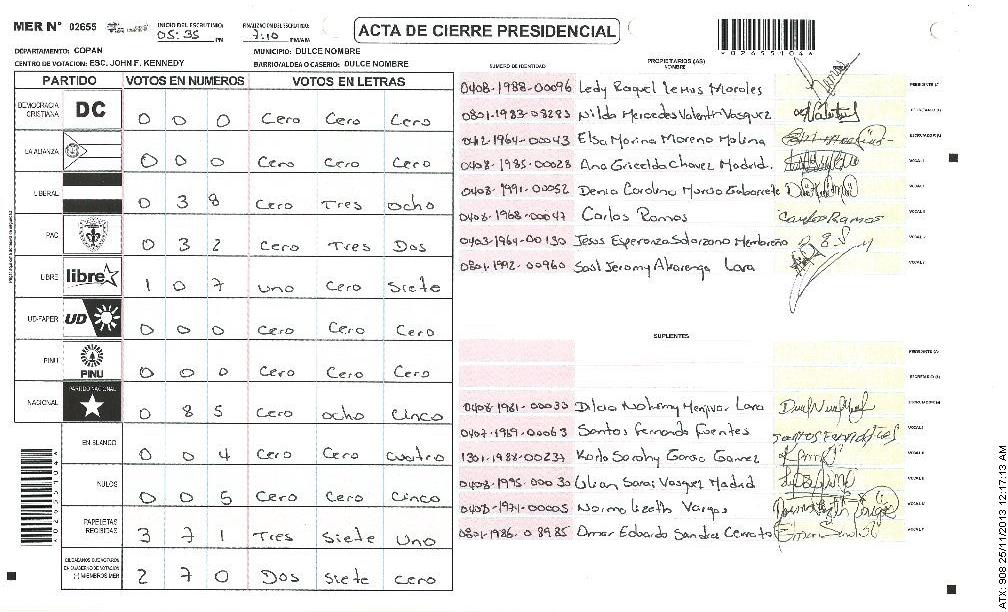 MER N° 02655 INICIO DEL ESCRUTINIO: 05:35 PM FINALIZACION DEL ESCRUTINIO: 7:10 PM/AM ACTA DE CIERRE PRESIDENCIAL
DEPARTAMENTO: COPAN MUNICIPIO: DULCE NOMBRE
CENTRO DE VOTACION: ESC. JOHN F. KENNEDY BARRIO/ALDEA O CASERIO: DULCE NOMBRE
PARTIDO VOTOS EN NUMEROS VOTOS EN LETRAS
DEMOCRACIA CRISTIANA DC 0 0 0 Cero Cero Cero
LA ALIANZA 0 0 0 Cero Cero Cero
LIBERAL 0 3 8 Cero Tres ocho
PAC 0 3 2 Cero Tres Dos
LIBRE libre 1 0 7 uno Cero Siete
UD-FAPER UD 0 0 0 Cero Cero Cero
PINU PINU 0 0 0 Cero Cero Cero
NACIONAL PARTIDO NACIONAL 0 8 5 Cero ocho Cinco
EN BLANCO 0 0 4 Cero Cero cuatro
NULOS 0 0 5 Cero Cero Cinco
PAPELETAS RECIBIDAS 3 7 1 Tres Siete Uno
2 7 0 Dos Siete cero
NUMERO DE IDENTIDAD PROPIETARIOS (AS) NOMBRE
0408-1988-00096 Ledy Raquel Lemus Morales
0801-1983-08285 Nilda Mercedes Valentin Vasquez
0412-1964-00043 Elsa Marina Moreno Molina
0408-1985-00028 Ana Gricelda Chavez Madrid.
0408-1991-00052 Denia Carolina Murcia Gabarrete
0408-1968-00047 Carlos Ramos Carlos Ramos
0403-1964-00130 Jesus Esperanza Solorzano Membreño
0801-1992-00960 Saul Jeromy Alvarenga Lara
SUPLENTES
0408-1981-00033 Dilcia Nohemy Menjivar Lara
0407-1969-00063 Santos Fernando Fuentes
1301-1988-00237 Karla Sarahy Garcia Gamez
0408-1995-00030 Lilian Sarai Vasquez Madrid
0408-1971-00005 Norma Lizeth Vargas
0801-1986-08985 Omar Eduardo Sandres Cerrato
ATX: 908 25/11/2013 12:17:13 AM